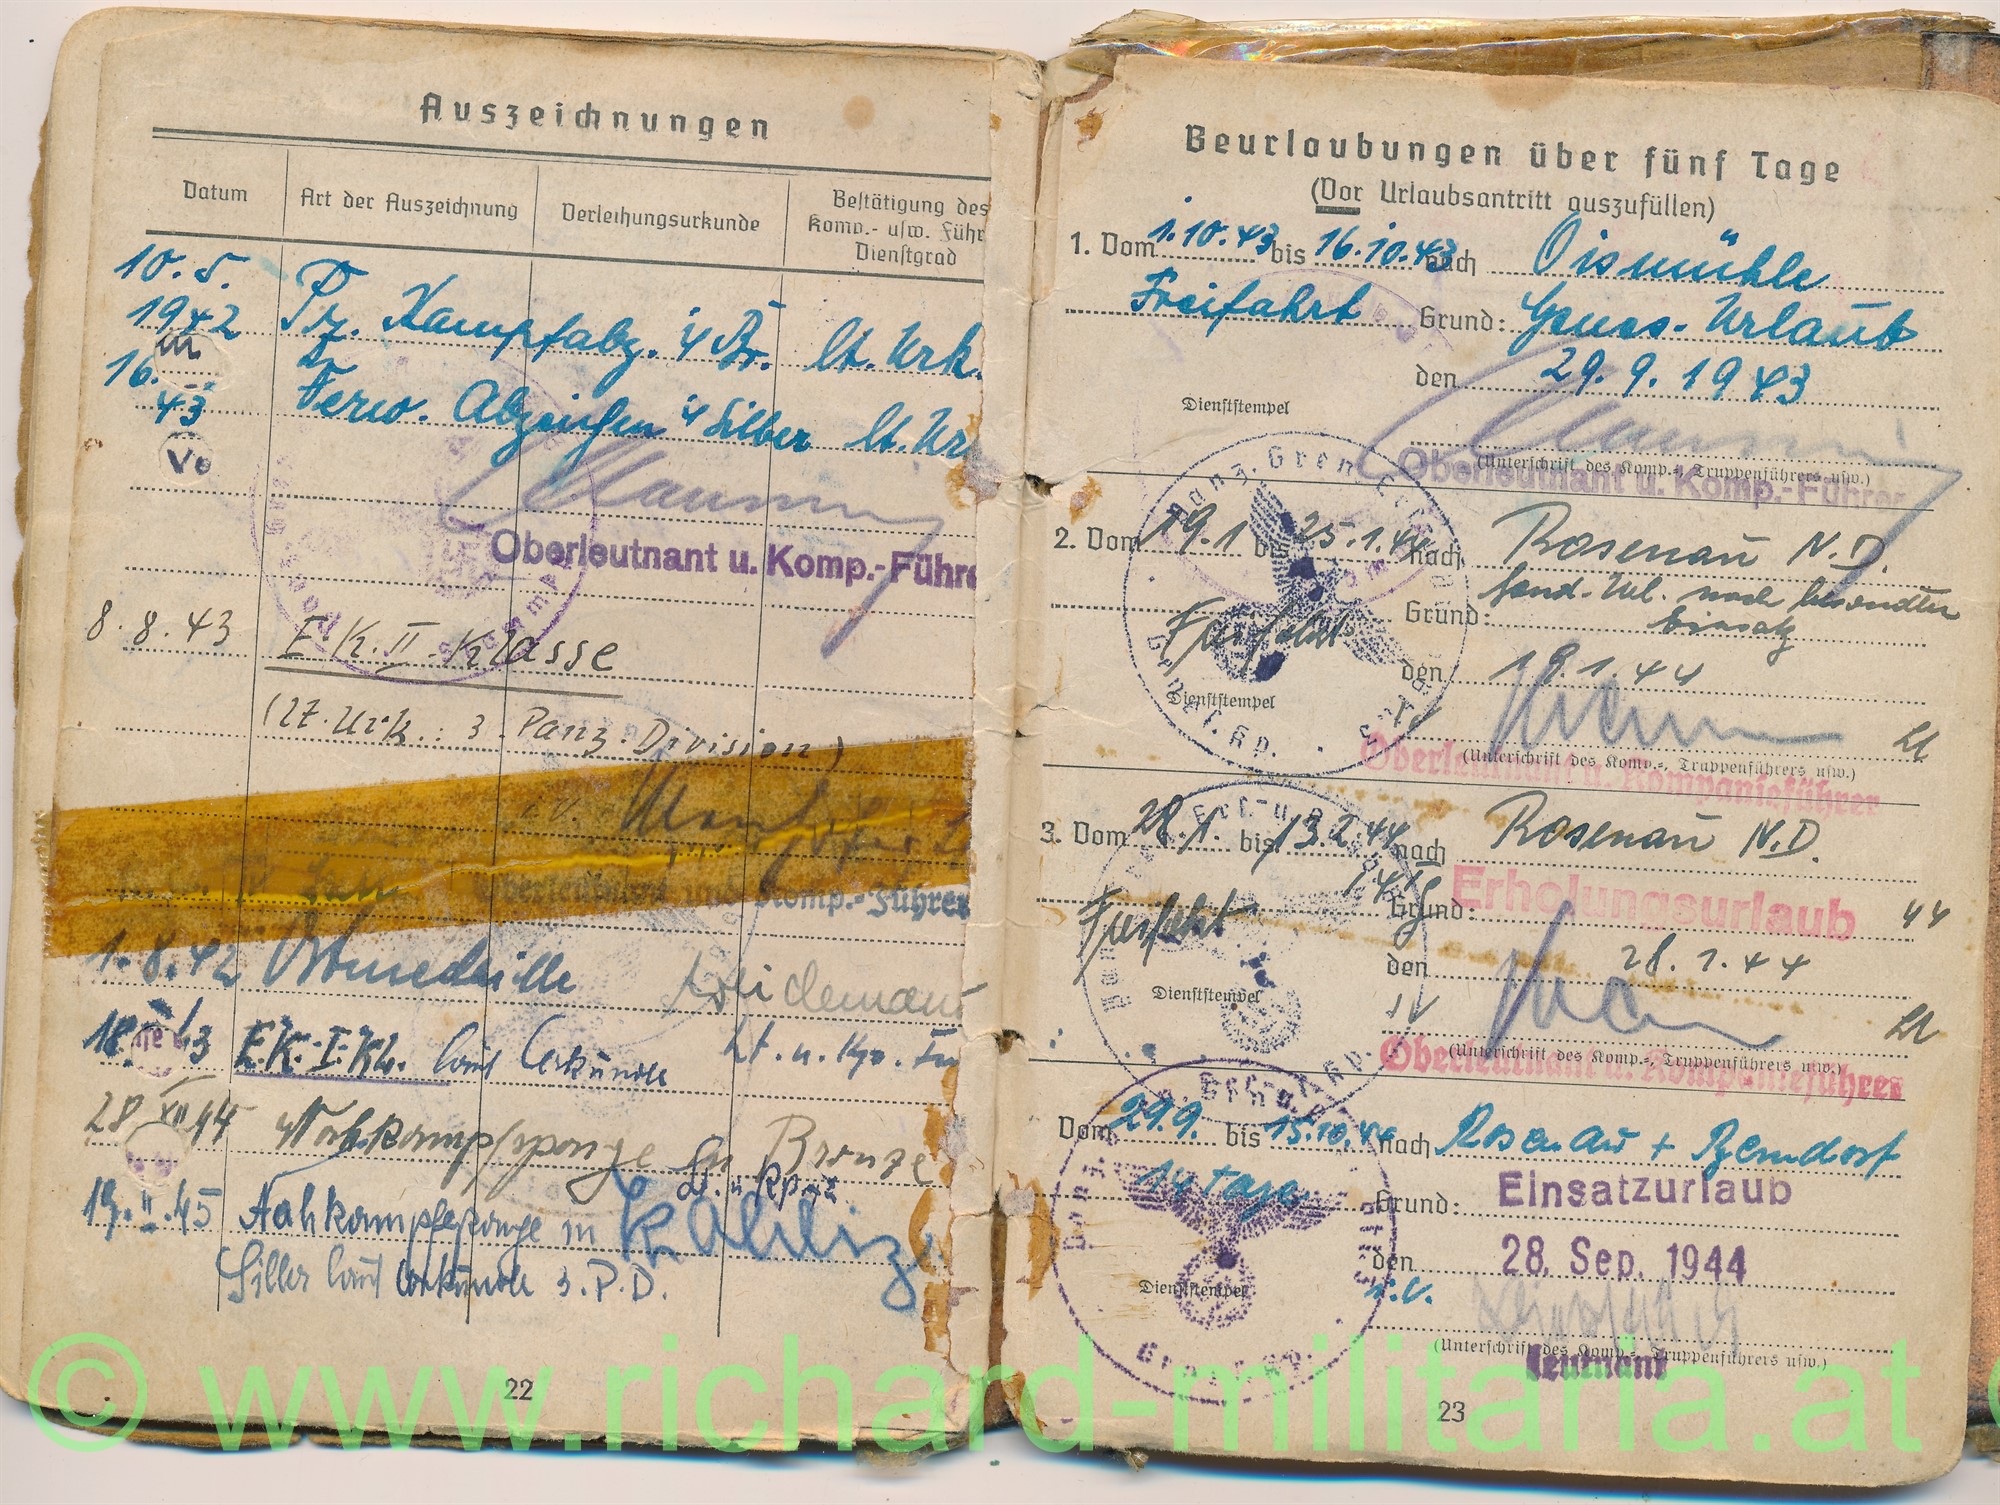 Auszeichnungen
Datum
Art der Auszeichnung
Verleihungsurkunde
Bestätigung des
Komp.- usw. Führ
Dienstgrad
10. 5.
1942
Pz. Kampfabz. i/ Br. lt. Urk.
16.
43
Verw. Abzeichen i/ Silber lt. Ur
Oberleutnant u. Komp.-Führe
8. 8. 43 E.K. II. Klasse
(lt. Urk.: 3. Panz. Division)
Oberleutnant und Komp.-Führer
1. 8. 42 Ostmedaille
18. 43 E.K. I. Kl. laut Urkunde Lt. u. Kp. Fü
28 XII 44 Nahkampfspange in Bronze
Lt. u. Kp.
19. II. 45 Nahkampfspange in
Silber laut Urkunde 3. P. D.
22
Beurlaubungen über fünf Tage
(Vor Urlaubsantritt auszufüllen)
1. Vom 1.10.43 bis 16.10.43 nach Oismühle
Freifahrt Grund: Genes.-Urlaub
den 29. 9. 1943
Dienststempel
(Unterschrift des Komp.-, Truppenführers usw.)
Oberleutnant u. Komp.-Führer
2. Vom 19.1 bis 25.1.44 nach Rosenau N.D.
Sond.-Url. nach besonderem
Freifahrt Grund: Einsatz
den 19. 1. 44
Dienststempel
(Unterschrift des Komp.-, Truppenführers usw.)
Oberleutnant u. Kompanieführer
3. Vom 28.1. bis 13.2.44 nach Rosenau N.D.
Freifahrt Grund: Erholungsurlaub
den 28. 1. 44
Dienststempel
(Unterschrift des Komp.-, Truppenführers usw.)
Oberleutnant u. Kompanieführer
Vom 29.9. bis 15.10.44 nach Rosenau + Berndorf
14 Tage Grund: Einsatzurlaub
den 28. Sep. 1944
Dienststempel i.V.
(Unterschrift des Komp.-, Truppenführers usw.)
Leutnant
23
© www.richard-militaria.at ©